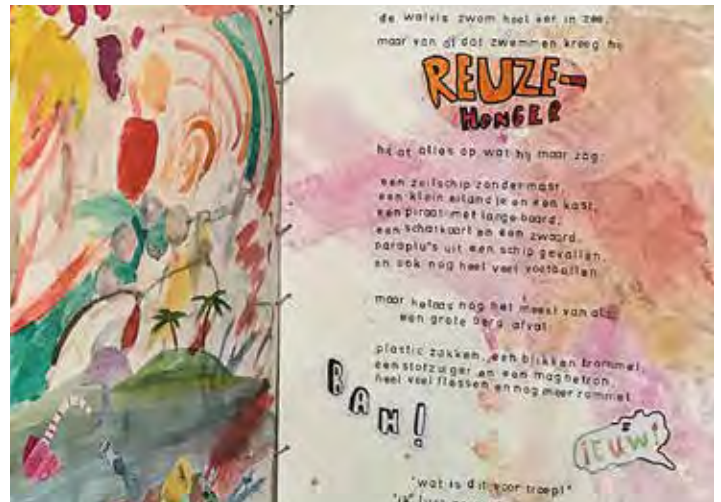 de walvis zwom heel ver in zee,
maar van al dat zwemmen kreeg hij
REUZE-
HONGER
hij at alles op wat hij maar zag:
een zeilschip zonder mast,
een klein eilandje en een kast,
een piraat met lange baard,
een schatkaart en een zwaard,
paraplu's uit een schip gevallen,
en ook nog heel veel voetballen.
maar helaas nog het meest van al:
een grote berg afval.
plastic zakken, een blikken trommel,
een stofzuiger en een magnetron,
heel veel flessen en nog meer rommel.
BAH!
iEUW!
"wat is dit voor troep!"